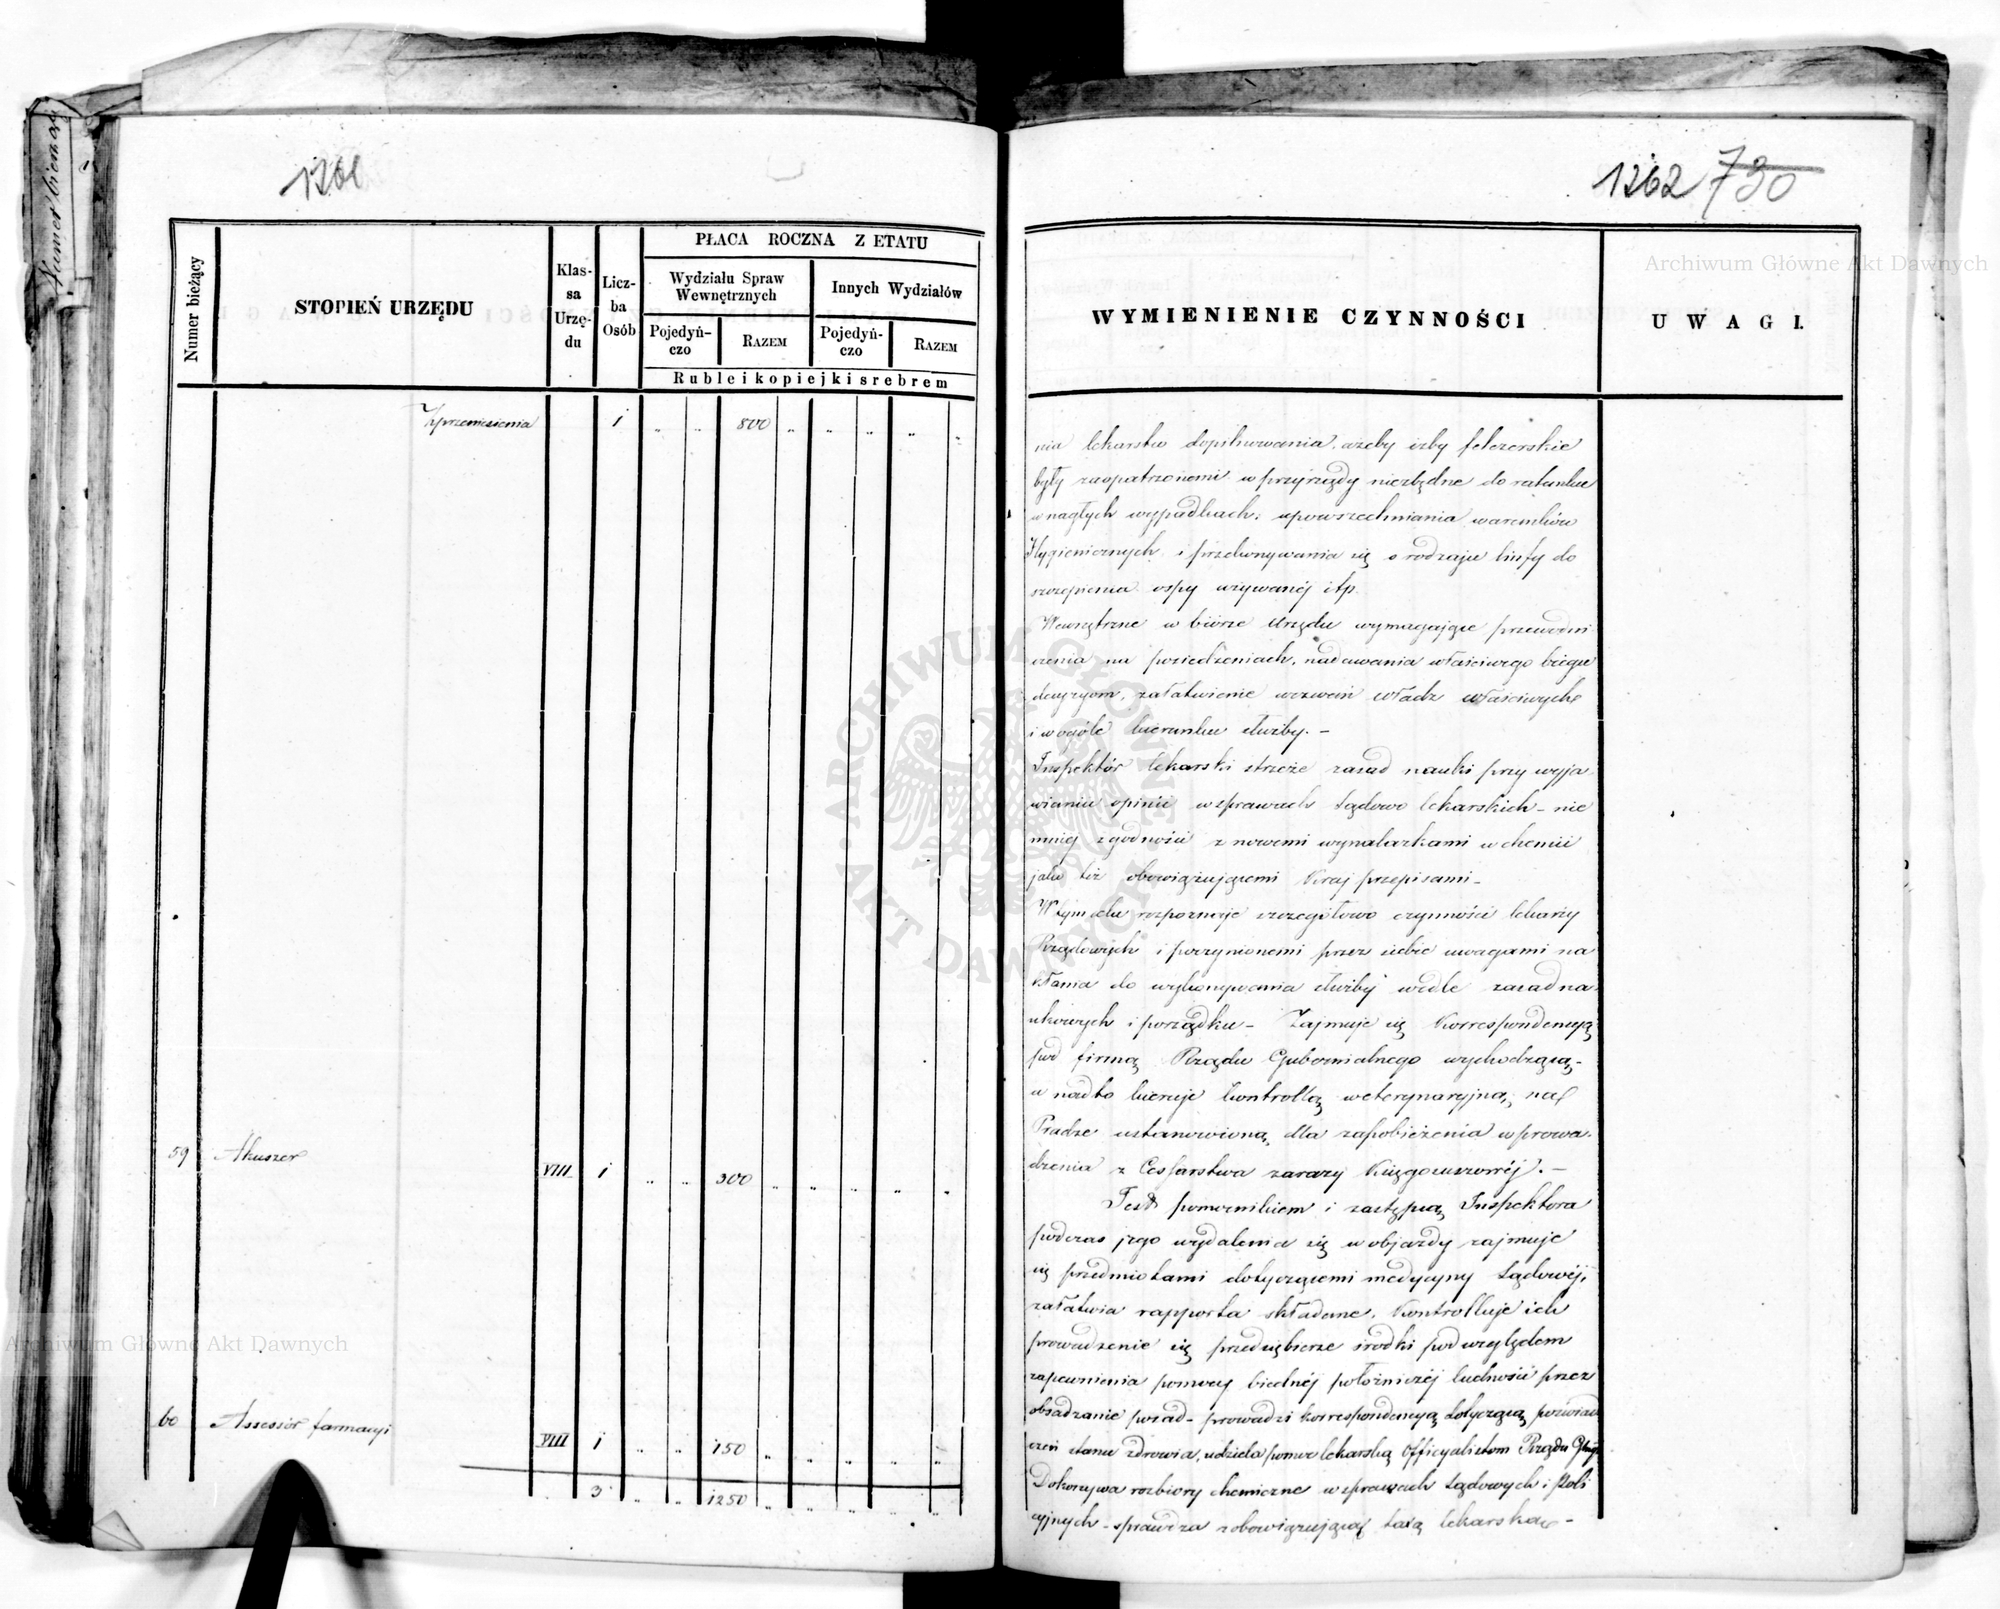 Numer bieżący
1261
Numer bieżący
STOPIEŃ URZĘDU
Klas-
sa
Urzę-
du
Licz-
ba
Osób
PŁACA ROCZNA Z ETATU
Wydziału Spraw
Wewnętrznych
Innych Wydziałów
Pojedyń-
czo
RAZEM
Pojedyń-
czo
RAZEM
Ruble i kopiejki srebrem
Z przeniesienia 1 " " 800 " " " " "
59 Akuszer VIII 1 " " 300 " " " " "
60 Assessór farmacyi VIII 1 " " 150 " " " " "
3 " " 1250 " " " " "
1262 730
WYMIENIENIE CZYNNOŚCI
UWAGI.
nia lekarstw dopilnowania, ażeby izby felczerskie
były zaopatrzonemi w przyrządy niezbędne do ratunku
w nagłych wypadkach, upowszechniania warunków
Hygienicznych i przekonywania się o rodzaju limfy do
szczepienia ospy używanéj itp.
Wewnętrzne w biórze Urzędu wymagające przewodni
czenia na posiedzeniach, nadawania właściwego biegu
decyzyom, załatwienie wezwań władz właściwych
i wogóle kierunku służby. –
Inspektór lekarski strzeże zasad nauki przy wyja
wianiu opinii w sprawach Sądowo lekarskich – nie
mniej zgodności z nowemi wynalazkami w chemii
jako téż obowiązującemi Kraj przepisami –
W tym celu rozpoznaje szczegółowo czynności lekarzy
Rządowych i poczynionemi przez siebie uwagami na
kłania do wykonywania służby wedle zasad na
ukowych i porządku – Zajmuje się Korrespondencyą
pod firmą Rządu Gubernialnego wychodzącą –
a nadto kieruje kontrollą weterynaryjną, na
Pradze ustanowioną, dla zapobieżenia wprowa
dzenia z Cesarstwa zarazy Księgosuszowéj. –
Jest pomocnikiem i zastępcą Inspektora
podczas jego wydalenia się w objazdy zajmuje
się przedmiotami dotyczącemi medycyny Sądowéj,
załatwia rapporta składane, Kontrolluje ich
prowadzenie się przedsiębierze środki pod względem
zapewnienia pomocy biednéj położniczéj ludności przez
obsadzanie posad – prowadzi korrespondencyą dotyczącą poświad
czeń stanu zdrowia, udziela pomoc lekarską Officyalistom Rządu
Dokonywa rozbiory chemiczne w sprawach Sądowych i Poli
cyjnych – sprawdza z obowiązującą taxą lekarską –
Archiwum Główne Akt Dawnych
Archiwum Główne Akt Dawnych
ARCHIWUM GŁÓWNE AKT DAWNYCH